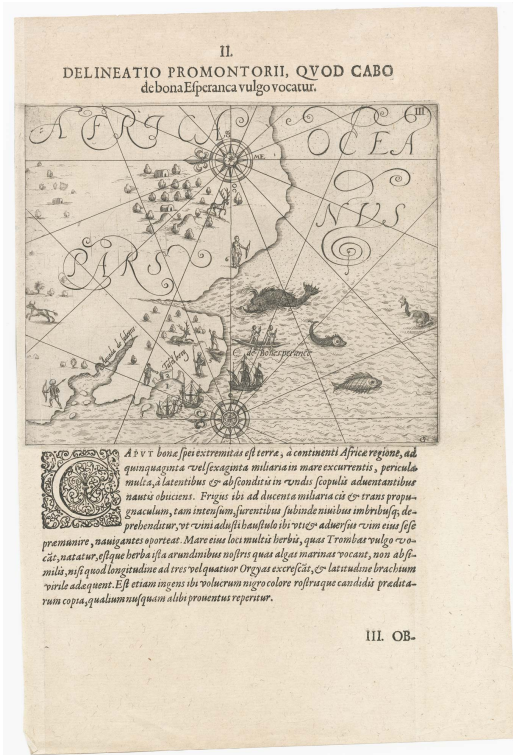 II.
DELINEATIO PROMONTORII, QVOD CABO
de bona Esperanca vulgo vocatur.
III
AFRICAE
OCEA
NVS
PARS
ME
C. de bone sperance
CAPVT bonæ spei extremitas est terræ, à continenti Africæ regione, ad
quinquaginta vel sexaginta miliaria in mare excurrentis, pericula
multa, à latentibus & absconditis in vndis scopulis aduentantibus
nautis obiiciens. Frigus ibi ad ducenta miliaria cis & trans propu-
gnaculum, tam intensum, furentibus subinde niuibus imbribusq; de-
prehenditur, vt vini adusti haustulo ibi vti & aduersus vim eius sese
præmunire, nauigantes oporteat. Mare eius loci multis herbis, quas Trombas vulgo vo-
cāt, natatur, estque herba ista arundinibus nostris quas algas marinas vocant, non absi-
milis, nisi quod longitudine ad tres vel quatuor Orgyas excrescāt, & latitudine brachium
virile adæquent. Est etiam ingens ibi volucrum nigro colore rostrisque candidis prædita-
rum copia, qualium nusquam alibi prouentus reperitur.
III. OB-